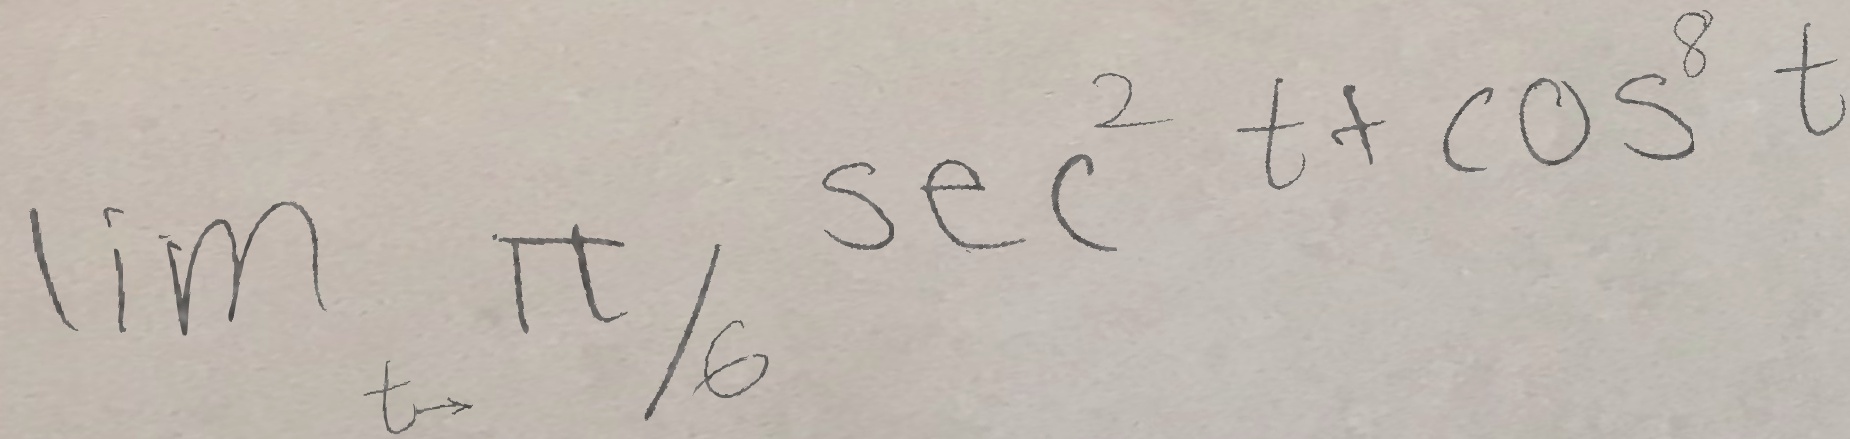 lim t→ π/6 sec² t + cos⁸ t